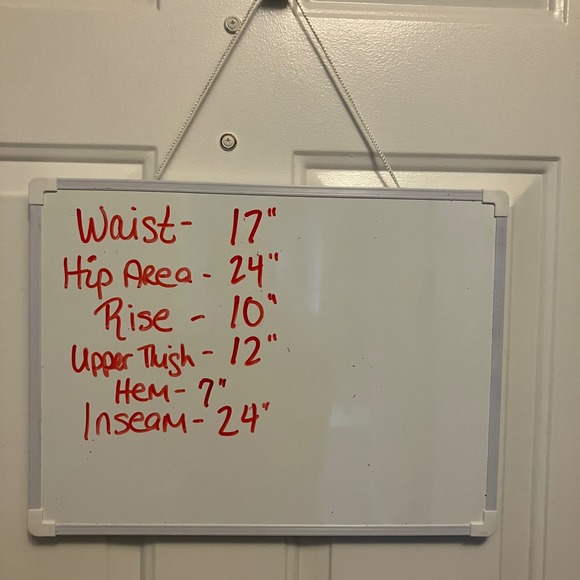 Waist- 17"
Hip Area - 24"
Rise - 10"
Upper Thigh - 12"
Hem- 7"
Inseam- 24"